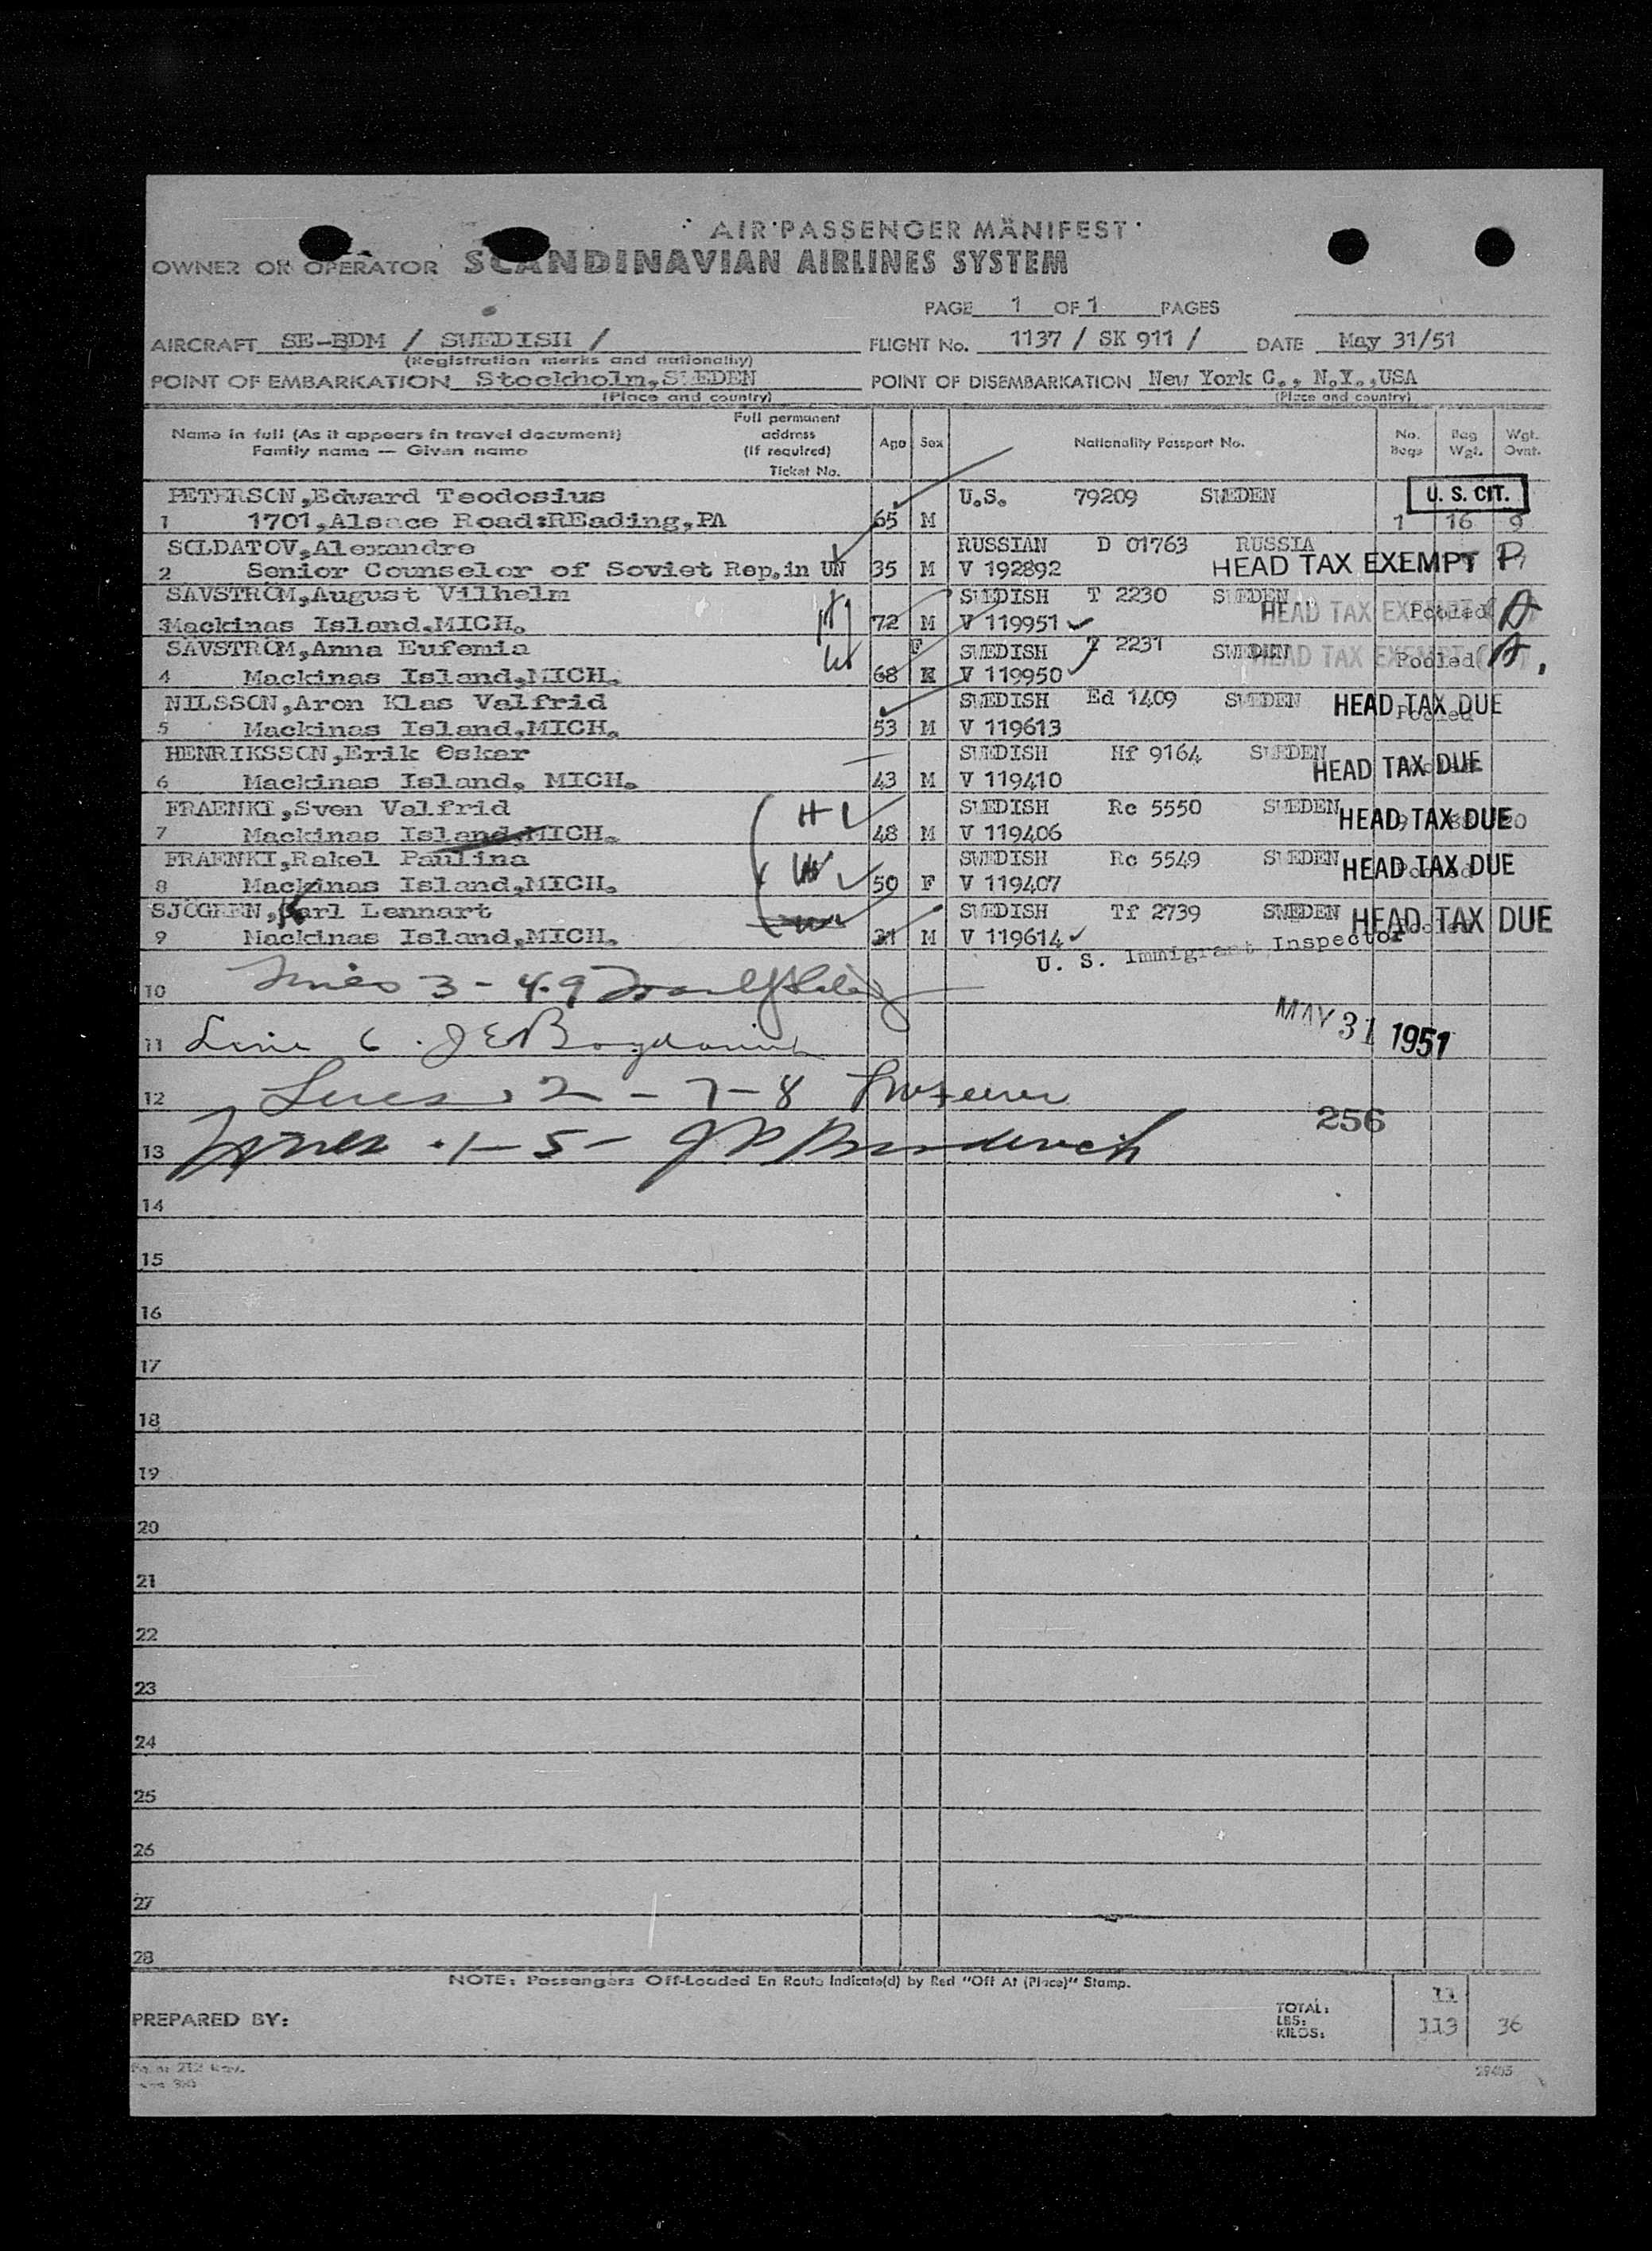 AIR PASSENGER MANIFEST
OWNER OR OPERATOR SCANDINAVIAN AIRLINES SYSTEM
PAGE 1 OF 1 PAGES
AIRCRAFT SE-BDM / SWEDISH / FLIGHT No. 1137 / SK 911 / DATE May 31/51
(Registration marks and nationality)
POINT OF EMBARKATION Stockholm,SWEDEN POINT OF DISEMBARKATION New York C., N.Y.,USA
(Place and country) (Place and country)
Name in full (As it appears in travel document) Family name — Given name Full permanent address (If required) Ticket No. Age Sex Nationality Passport No. No. Bags Bag Wgt. Wgt. Ovnt.
PETERSON,Edward Teodosius U.S. 79209 SWEDEN U. S. CIT.
1 1701,Alsace Road:REading,PA 65 M 1 16 9
SOLDATOV,Alexandre RUSSIAN D 01763 RUSSIA
2 Senior Counselor of Soviet Rep.in UN 35 M V 192892 HEAD TAX EXEMPT P
SAVSTROM,August Vilhelm SWEDISH T 2230 SWEDEN
3 Mackinas Island.MICH. 72 M V 119951 HEAD TAX EXEMPT Pooled
SAVSTROM,Anna Eufemia F SWEDISH T 2231 SWEDEN
4 Mackinas Island,MICH. 68 V 119950 HEAD TAX EXEMPT Pooled
NILSSON,Aron Klas Valfrid SWEDISH Ed 1409 SWEDEN HEAD TAX DUE
5 Mackinas Island,MICH. 53 M V 119613 Pooled
HENRIKSSON,Erik Oskar SWEDISH Hf 9164 SWEDEN HEAD TAX DUE
6 Mackinas Island, MICH. 43 M V 119410
FRAENKI,Sven Valfrid SWEDISH Rc 5550 SWEDEN HEAD TAX DUE
7 Mackinas Island,MICH. 48 M V 119406
FRAENKI,Rakel Paulina SWEDISH Rc 5549 SWEDEN HEAD TAX DUE
8 Mackinas Island,MICH. 50 F V 119407
SJOGREN, Carl Lennart SWEDISH Tf 2739 SWEDEN HEAD TAX DUE
9 Mackinas Island,MICH. M V 119614
U. S. Immigrant Inspector
10 Lines 3 - 4-9
MAY 31 1951
11 Line 6
12 Lines 2 - 7-8
256
13 Lines 1-5-
14
15
16
17
18
19
20
21
22
23
24
25
26
27
28
NOTE: Passengers Off-Loaded En Route Indicate(d) by Red "Off At (Place)" Stamp.
PREPARED BY: TOTAL: 11
LBS:
KILOS: 113 36